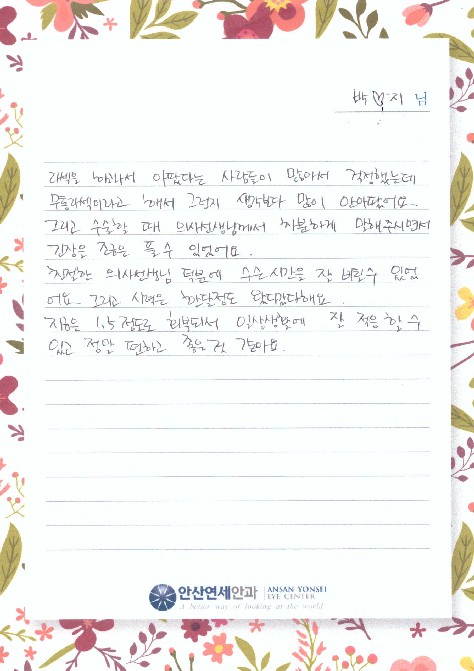 박♡지 님
라섹을 하고나서 아팠다는 사람들이 많아서 걱정했는데
무통라섹이라고 해서 그런지 생각보다 많이 안아팠어요..
그리고 수술할 때 의사선생님께서 차분하게 말해주시면서
긴장은 조금은 풀 수 있었어요.
친절한 의사선생님 덕분에 수술시간을 잘 버틸수 있었
어요. 그리고 시력은 한달정도 왔다갔다해요.
지금은 1.5정도로 회복되서 일상생활에 잘 적응할 수
있고 정말 편하고 좋은것 같아요.
안산연세안과 ANSAN YONSEI
EYE CENTER
A better way of looking at the world